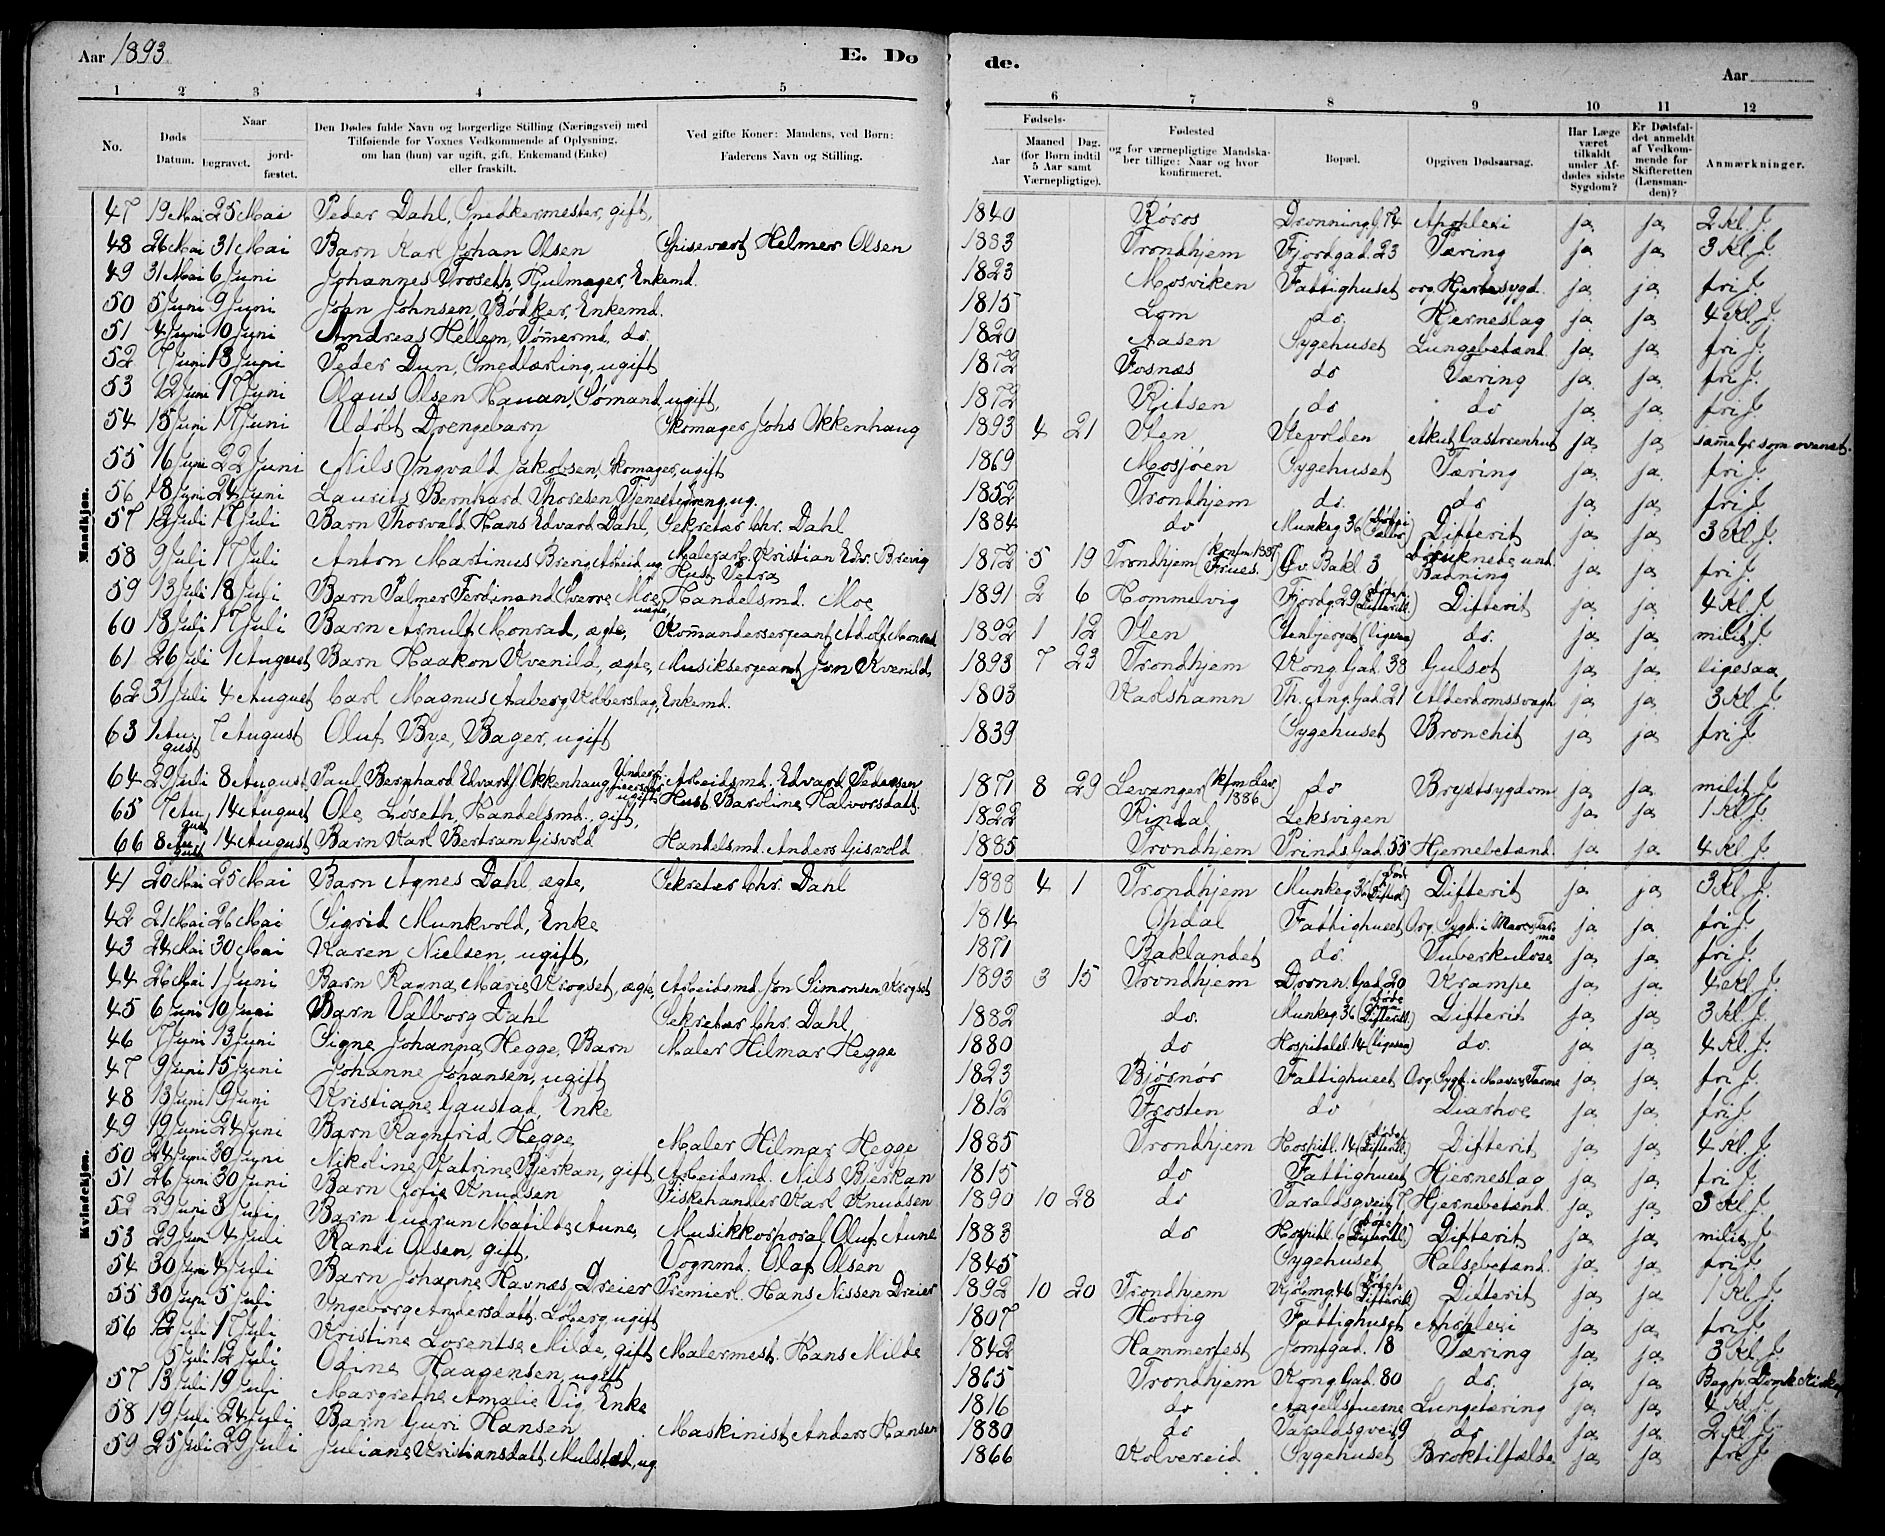 Aar 1893
E. Dode.
Aar
1 2 3 4 5 6 7 8 9 10 11 12
No.
Døds Datum.
Naar
begravet.
jordfæstet.
Den Dødes fulde Navn og borgerlige Stilling (Næringsvei) med Tilføiende for Voxnes Vedkommende af Oplysning, om han (hun) var ugift, gift, Enkemand (Enke) eller fraskilt.
Ved gifte Koner: Mandens, ved Børn: Faderens Navn og Stilling.
Fødsels-
Aar
Maaned Dag. (for Børn indtil 5 Aar samt Værnepligtige).
Fødested og for værnepligtige Mandskaber tillige: Naar og hvor konfirmeret.
Bopæl.
Opgiven Dødsaarsag.
Har Læge været tilkaldt under Afdødes sidste Sygdom?
Er Dødsfaldet anmeldt af Vedkommende for Skifteretten (Lensmanden)?
Anmærkninger.
Mandkjøn.
47 19 Mai 25 Mai Peder Dahl, Snedkermester, gift, 1840 Røros Dronning.g. 74 Apoplexi ja ja 2 Kl. J.
48 26 Mai 31 Mai Barn Karl Johan Olsen Spisevært Helmer Olsen 1883 Trondhjem Fjordgad. 23 Tæring ja ja 3 Kl. J.
49 31 Mai 6 Juni Johannes Troseth, Hjulmager, Enkemd. 1823 Mosviken Fattighuset org. Hjertesygd. ja ja fri J.
50 5 Juni 9 Juni John Johnsen, Bødker, Enkemd. 1815 Lom do. Hjerneslag ja ja 4 Kl. J.
51 4 Juni 10 Juni Andreas Hellem, Tømermd, do. 1820 Aasen Sygehuset Lungebetænd. ja ja fri J.
52 7 Juni 13 Juni Peder Dun, Smedlærling, ugift 1872 Fosnæs do Tæring ja ja fri J.
53 12 Juni 17 Juni Olaus Olsen Hauan, Sømand, ugift, 1872 Ritsen do do ja ja fri J.
54 15 Juni 17 Juni Udøbt Drengebarn Skomager Johs Okkenhaug 1893 4 21 Ilen Ilevolden Akut Gastroenhut ja ja samelys som ovenst.
55 16 Juni 22 Juni Nils Yngvald Jakobsen, Skomager, ugift 1869 Mosjøen Sygehuset Tæring ja ja. fri J.
56 18 Juni 24 Juni Laurits Bernhard Thoresen, Tjenestedreng, ug. 1852 Trondhjem do. do ja ja fri J.
57 12 Juli 17 Juli Barn Thorvald Hans Edvard Dahl, Sekretær Chr. Dahl 1884 do Munkeg 36 Difterit ja ja 3 Kl. J.
58 9 Juli 17 Juli Anton Martinus Brevig, Arbeid, ug. Malerarb. Kristian Edv. Brevig Hust Petra 1872 5 19 Trondhjem (Konfm. 1887 Frues.) Øv. Bakl. 3 druknede und. Badning ja ja fri J.
59 13 Juli 18 Juli Barn Palmer Ferdinand Sverre Moe, uægte, Handelsmd. Moe 1891 2 6 Hommelvig Fjordg 29 Difterit ja ja 4 Kl. J.
60 13 Juli 17 Juli Barn Arnulf Monrad, ægte, Komandersergeant Adolf Monrad 1892 1 12 Ilen Stenbjerget (ligesaa) do. ja ja milit J.
61 26 Juli 1 August Barn Haakon Kvenild, ægte, Musiksergeant Jørn Kvenild, 1893 7 23 Trondhjem Kong. Gad. 38 Gulsot ja ja ligesaa
62 31 Juli 4 August Carl Magnus Aaberg, Kobberslag, Enkemd. 1803 Karlshamn Th. Ang. Gad. 21 Alderdomssvagh. ja ja 3 Kl. J.
63 1 August 7 August Oluf Bye, Bager, ugift 1839 Sygehuset Bronchit ja ja fri J.
64 29 Juli 8 August Paul Bernhard Edvards. Okkenhaug ugift, Arbeidsmd. Edvard Pedersen Hust. Baroline Halvorsdatt. 1871 8 29 Levanger (Kfm Lev. 1886) do Brystsygdom ja ja milit J.
65 7 August 14 August Ole Løseth, Handelsmd., gift, 1822 Rindal Leksvigen ja ja 1 Kl. J.
66 8 August 14 August Barn Karl Bertram Gisvold Handelsmd. Anders Gisvold 1885 Trondhjem Prinds. Gad. 55 Hjernebetænd. ja ja 4 Kl. J.
Kvindekjøn.
41 20 Mai 25 Mai Barn Agnes Dahl, ægte, Sekretær Chr. Dahl 1888 4 1 Trondhjem Munkeg 36 Difterit ja ja 3 Kl. J.
42 21 Mai 26 Mai Sigrid Munkvold, Enke 1814 Opdal Fattighuset Org. Sygd. i Mave & Tarme ja ja fri J.
43 24 Mai 30 Mai Karen Nielsen, ugift, 1871 Baklandet do. Tuberkulose ja ja fri J.
44 26 Mai 1 Juni Barn Ragna Marie Krogset, ægte, Arbeidsmd. Jon Simonsen Krogset 1893 3 15 Trondhjem Dronn. Gad. 20 Krampe ja ja 4 Kl. J.
45 6 Juni 10 Juni Barn Valborg Dahl Sekretær Chr. Dahl, 1882 do. Munkeg. 36 Difterit ja ja 3 Kl. J.
46 7 Juni 13 Juni Signe Johanna Hegge, Barn Maler Hilmar Hegge 1880 do Hospitalsl. 14 (ligesaa) do. ja ja 4 Kl. J.
47 9 Juni 15 Juni Johanne Johansen, ugift 1823 Bjørnør Fattighuset Org. Sygd. i Mave & Tarme ja ja fri J.
48 13 Juni 19 Juni Kristiane Gaustad, Enke 1812 Frosten do Diarhoe ja ja fri J
49 19 Juni 24 Juni Barn Ragnfrid Hegge Maler Hilmar Hegge 1885 Trondhjem Hospitl. 14 Difterit ja ja 4 Kl. J.
50 24 Juni 30 Juni Nikoline Katrine Bjerkan, gift, Arbeidsmd. Nils Bjerkan 1815 do Fattighuset Hjerneslag ja ja fri J.
51 26 Juni 30 Juni Barn Sofie Knudsen Fiskehandler Karl Knudsen 1890 10 28 do Taraldsgveit 7 Hjernebetænd. ja ja 3 Kl. J.
52 29 Juni 3 Juli Barn Gudrun Matilde Aune, Musikkorporal Oluf Aune 1883 do Hospitl. 6 Difterit ja ja milit J.
53 29 Juni 4 Juli Randi Olsen, gift, Vognmd. Olaf Olsen 1845 Sygehuset Halsebetænd. ja ja fri J.
54 30 Juni 4 Juli Barn Johanne Havnæs Dreier Premierl. Hans Nissen Dreier 1892 10 20 Trondhjem Kjøbmg 46 Difterit ja ja 1 Kl. J.
55 30 Juni 5 Juli Ingeborg Andersdatt. Løberg, ugift 1807 Hortig Fattighuset Apoplexi ja ja fri J.
56 12 Juli 17 Juli Kristine Lorentse Milde, gift, Malermest. Hans Milde 1842 Hammerfest Jomfgad. 18 Tæring ja ja 3 Kl. J.
5 Juli 12 Juli Odine Haagensen, ugift 1865 Trondhjem Kong. Gad. 80 do. ja ja Beg. p. Domk. Kirkeg.
57 13 Juli 19 Juli Margrethe Amalie Vig, Enke 1816 do Aagellstuerne Lungetæring ja ja 4 Kl. J.
58 19 Juli 24 Juli Barn Guri Hansen Maskinist Anders Hansen 1880 do Taraldsgveit 9 do ja ja 2 Kl. J.
59 25 Juli 29 Juli Juliane Kristiansdatt. Mulstad, ug. 1866 Kolvereid Sygehuset Broktilfælde ja ja fri J.